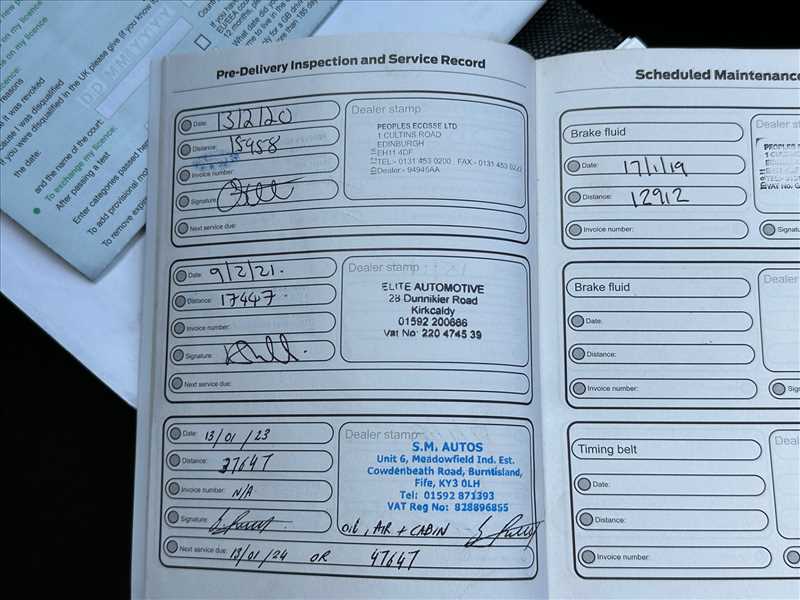 on my licence
on my licence
reasons
it was revoked
cause I was disqualified
if you were disqualified in the UK please give (if you know it
DD MM YYYY
the date:
and the name of the court:
To exchange my licence:
After passing a test
Enter categories passed here
To add provisional mo
To remove expire
Pre-Delivery Inspection and Service Record
Date: 13/2/20
Distance: 15958
Invoice number:
Signature:
Next service due:
Dealer stamp
PEOPLES ECOSSE LTD
1 CULTINS ROAD
EDINBURGH
EH11 4DF
TEL - 0131 453 0200 FAX - 0131 453 0222
Dealer - 94945AA
Date: 9/2/21.
Distance: 17447.
Invoice number:
Signature:
Next service due:
Dealer stamp
ELITE AUTOMOTIVE
28 Dunnikier Road
Kirkcaldy
01592 200666
Vat No: 220 4745 39
Date: 13/01/23
Distance: 37647
Invoice number: N/A
Signature:
Next service due: 13/01/24 OR 47647
Dealer stamp
S.M. AUTOS
Unit 6, Meadowfield Ind. Est.
Cowdenbeath Road, Burntisland,
Fife, KY3 0LH
Tel: 01592 871393
VAT Reg No: 828896855
OIL, AIR + CABIN
Scheduled Maintenance
Brake fluid
Date: 17/1/19
Distance: 12912
Invoice number:
Dealer s
PEOPLES
Signatu
Brake fluid
Date:
Distance:
Invoice number:
Dealer
Sig
Timing belt
Date:
Distance:
Invoice number:
Deal